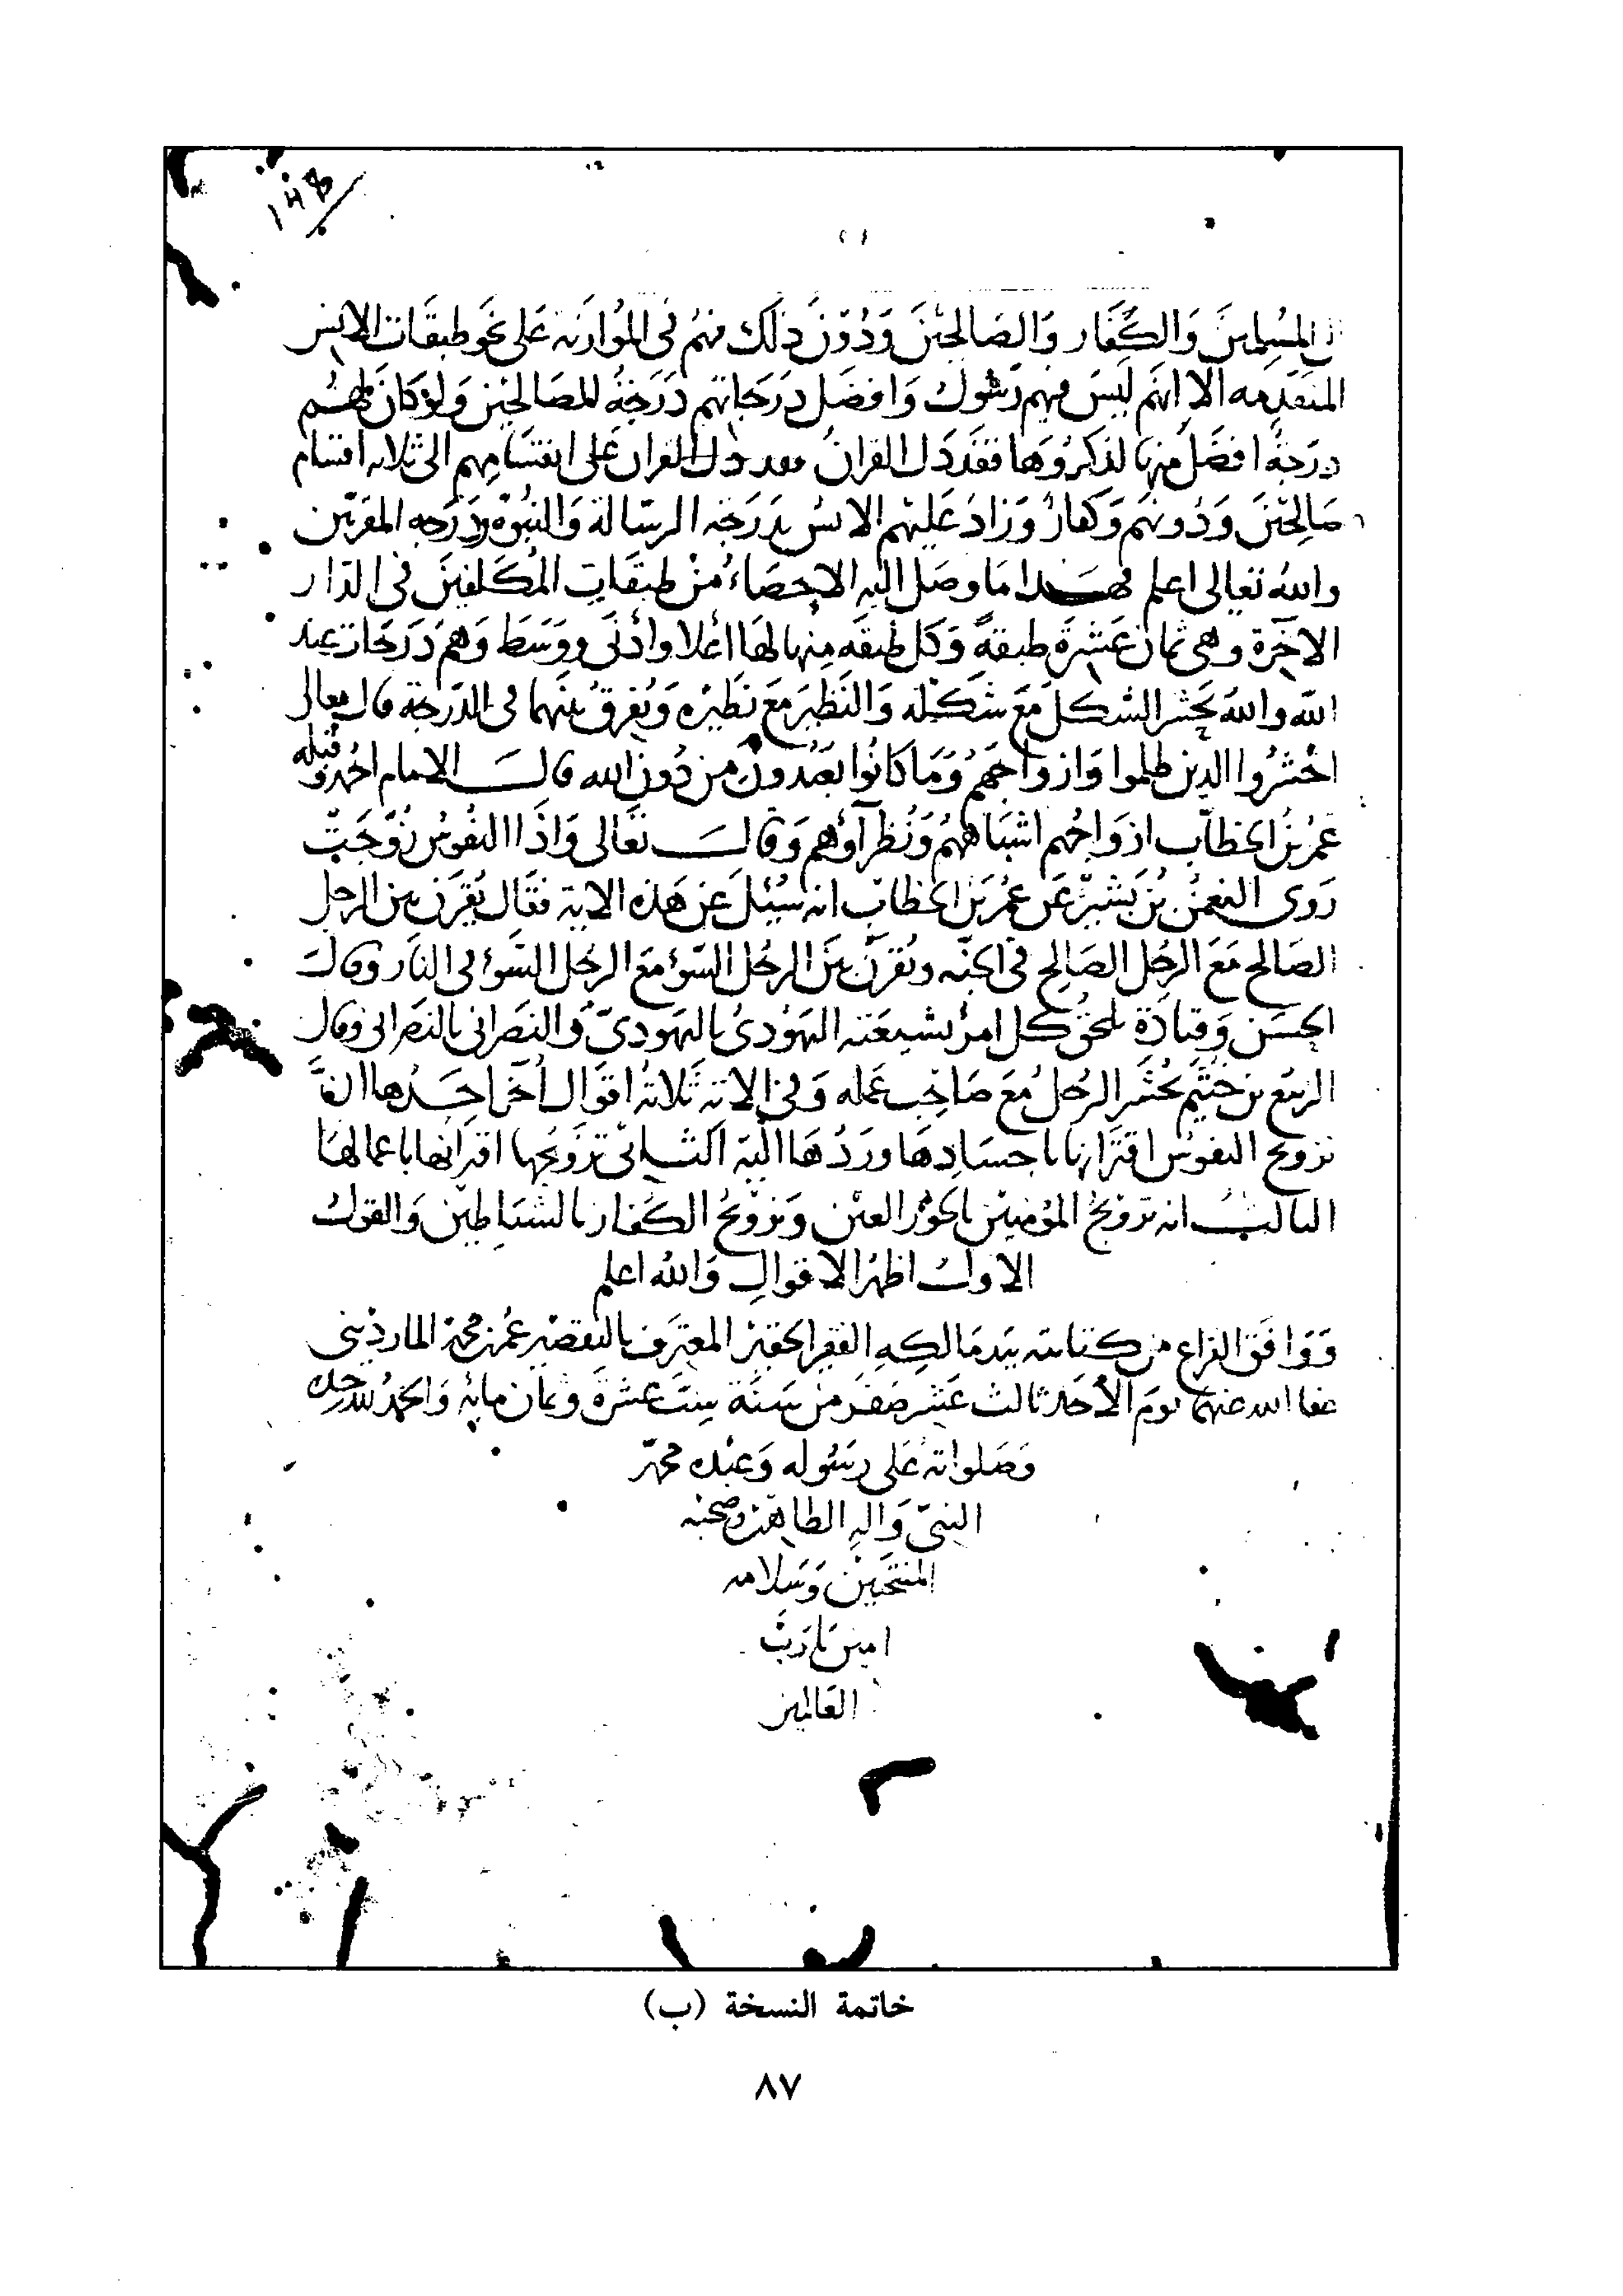 المسلمين والكفار والصالحين ودون ذلك فهم في الموازنة على نحو طبقات الانس
المتقدمه الا انهم ليس فيهم رسول وافضل درجاتهم درجة للصالحين ولو كان لهم
درجة افضل منها لذكروها فقد دل القران على انقسامهم الى ثلاثه اقسام
صالحين ودونهم وكفار وزاد عليهم الانس بدرجة الرسالة والنبوة ودرجه المقربين
والله تعالى اعلم فهذا ما وصل اليه الاحصاء من طبقات المكلفين في الدار
الاخرة وهي ثمان عشرة طبقة وكل طبقه منها لها اعلا وادنى ووسط وهم درجات عند
الله والله يحشر الشكل مع شكله والنظير مع نظيره ويقرن بينهما في الدرجة قال تعالى
احشروا الذين ظلموا وازواجهم وما كانوا يعبدون من دون الله قال الامام احمد وقبله
عمر بن الخطاب ازواجهم اشباههم ونظراؤهم وقال تعالى واذا النفوس زوجت
روى النعمن بن بشير عن عمر بن الخطاب انه سئل عن هذه الاية فقال يقرن بين الرجل
الصالح مع الرجل الصالح في الجنه ويقرن بين الرجل السوء مع الرجل السوء في النار وقال
الحسن وقتادة يلحق كل امرئ بشيعته اليهودي باليهودي والنصراني بالنصراني وقال
الربيع بن خثيم يحشر الرجل مع صاحب عمله وفي الاية ثلاثة اقوال أخر احدها ان
تزويج النفوس اقترانها باجسادها وردها اليه الثاني تزويجها اقترانها باعمالها
الثالث انه تزويج المؤمنين بالحور العين وتزويج الكفار بالشياطين والقول
الاول اظهر الاقوال والله اعلم
ووافق الفراغ من كتابته بيد مالكه الفقير الحقير المعترف بالتقصير عمر بن محمد المارديني
عفا الله عنهما يوم الأحد ثالث عشر صفر من سنة ست عشرة وثمان مايه والحمد لله وحده
وصلواته على رسوله وعبده محمد
النبي واله الطاهرين وصحبه
المنتجبين وسلامه
امين يا رب
العالمين
خاتمة النسخة (ب)
٨٧